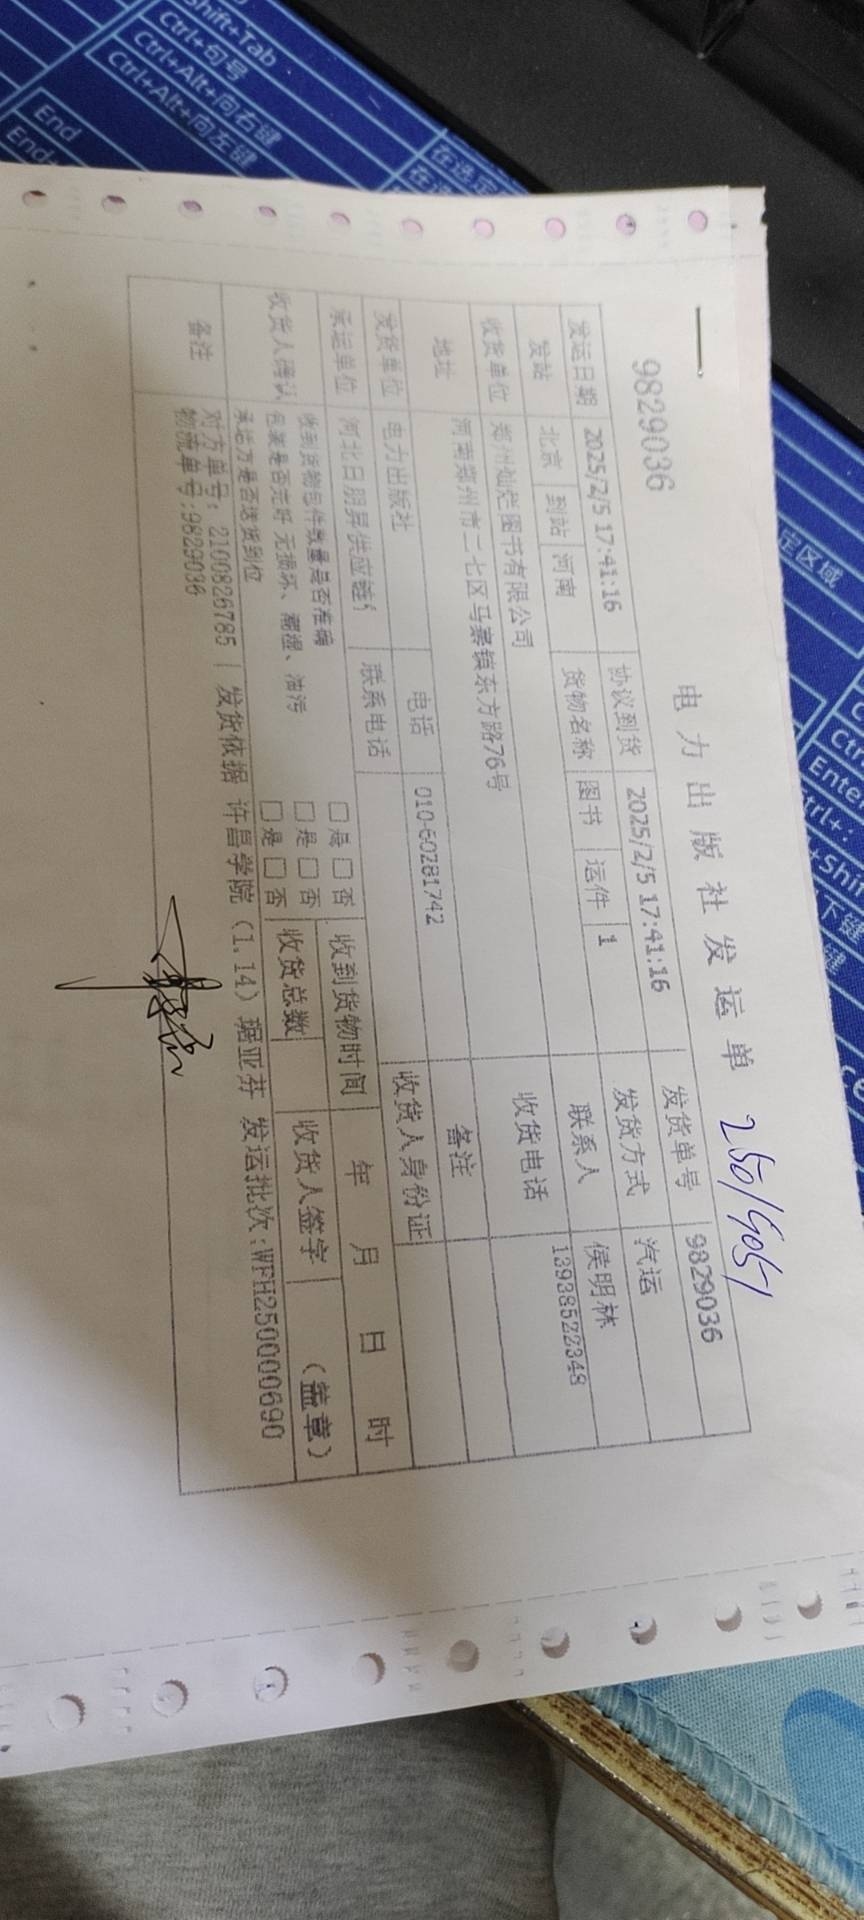 电力出版社发运单
9829036
发运日期 2025/2/5 17:41:16 协议到货 2025/2/5 17:41:16 发货单号 9829036
发站 北京 到站 河南 货物名称 图书 运件 1 发货方式 汽运
收货单位 郑州灿烂图书有限公司 联系人 侯明林
地址 河南郑州市二七区马寨镇东方路76号 收货电话 13938522348
发货单位 电力出版社 电话 010-60281742 备注
承运单位 河北日朋昇供应链 联系电话 收货人身份证
收货人确认 收到货物包件数量是否准确 □是□否 收到货物时间 年 月 日 时
包装是否完好 无损坏、潮湿、油污 □是□否 收货总数 收货人签字 (盖章)
承运方是否送货到位 □是□否
备注 对方单号: 2100826785 | 发货依据 许昌学院(1.14)琚亚芬 发运批次:WFH250000690
物流单号:9829036
Shift+Tab
Ctrl+句号
Ctrl+Alt+向右键
Ctrl+Alt+向左键
End
在选定
定区域